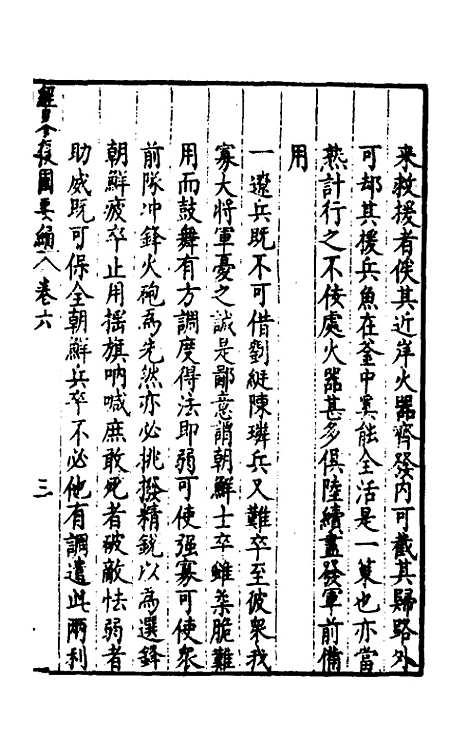 來救援者俟其近岸火器齊發内可截其歸路外
可却其援兵魚在釜中奚能全活是一策也亦當
熟計行之不佞處火器甚多俱陸續盡發軍前備
用
一遼兵既不可借劉綎陳璘兵又難卒至彼衆我
寡大將軍憂之誠是鄙意謂朝鮮士卒雖柔脆難
用而鼓舞有方調度得法即弱可使强寡可使衆
前隊冲鋒火砲為先然亦必挑撥精銳以為選鋒
朝鮮疲卒止用揺旗吶喊庶敢死者破敵怯弱者
助威既可保全朝鮮兵卒不必他有調遣此兩利
經畧復國要編 卷六 三